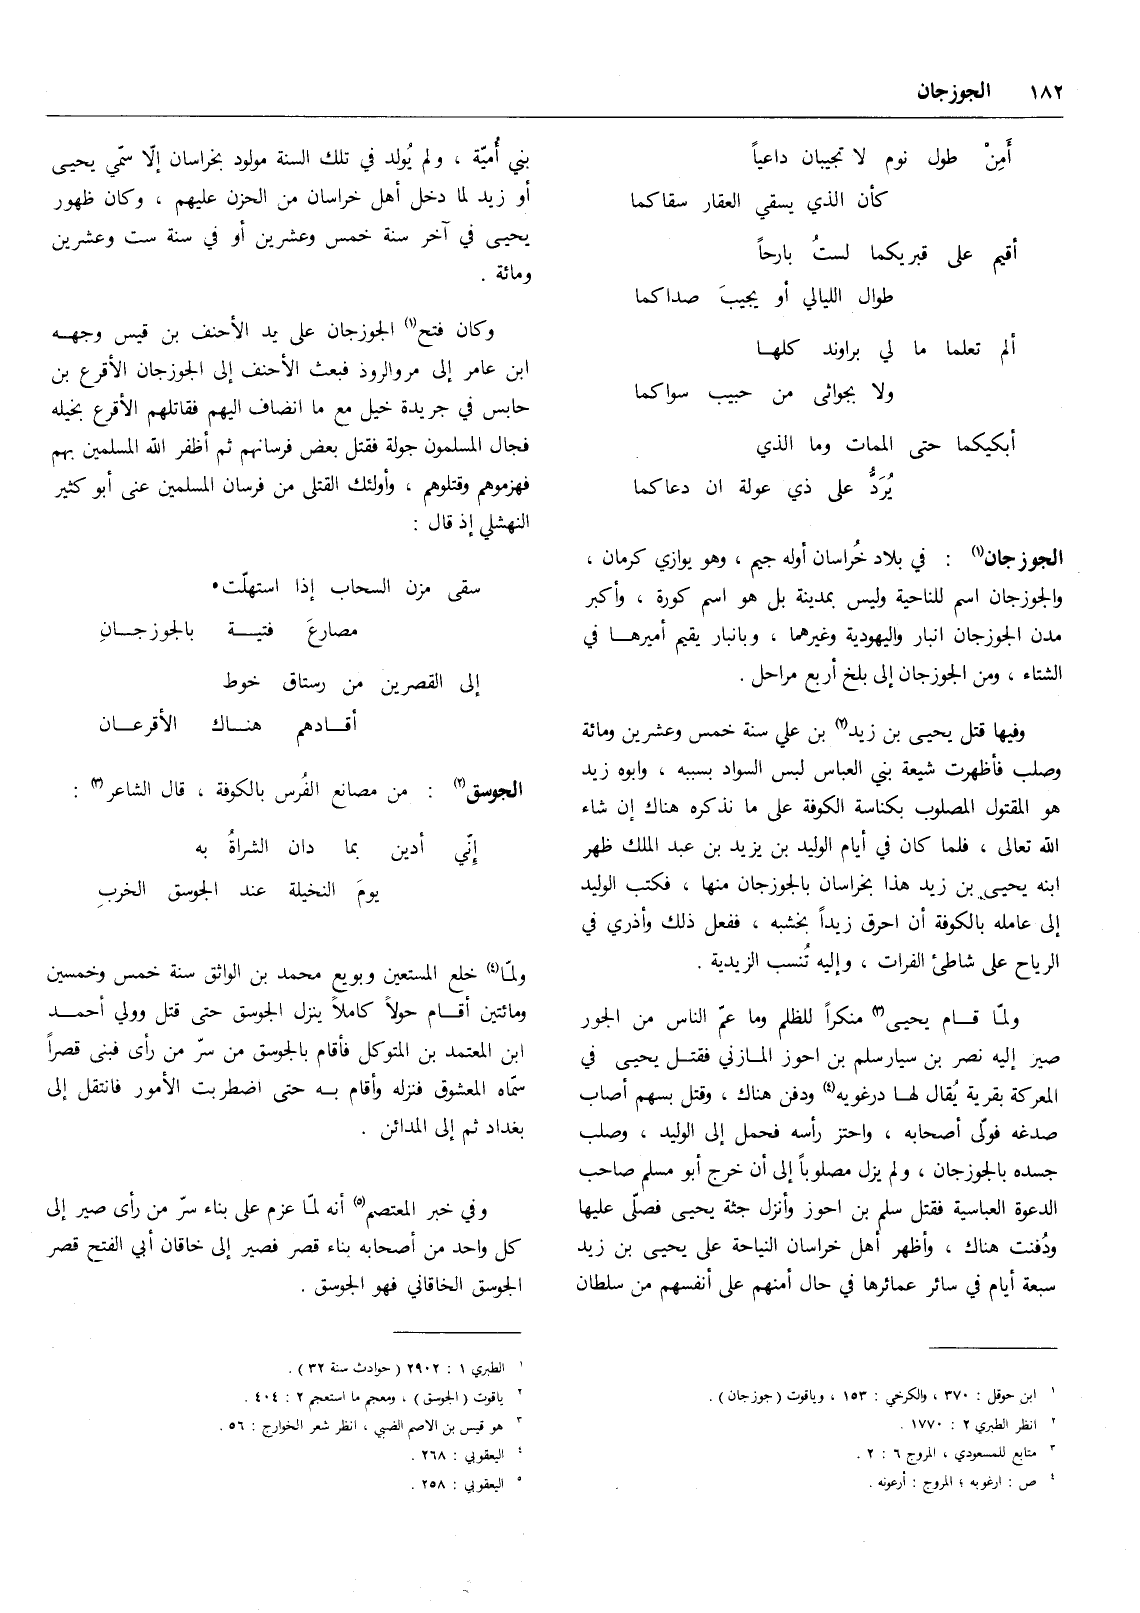 ١٨٢ الجوزجان
أَمِنْ طول نوم لا تجيبان داعياً
كأن الذي يسقي العقار سقاكما
أقيم على قبريكما لستُ بارحاً
طوال الليالي أو يجيبَ صداكما
ألم تعلما ما لي براوند كلهـا
ولا بجواثى من حبيب سواكما
أبكيكما حتى الممات وما الذي
يُرَدُّ على ذي عولة ان دعاكما
الجوزجان(١) : في بلاد خُراسان أوله جيم ، وهو يوازي كرمان ،
والجوزجان اسم للناحية وليس بمدينة بل هو اسم كورة ، وأكبر
مدن الجوزجان انبار واليهودية وغيرهما ، وبانبار يقيم أميرهـا في
الشتاء ، ومن الجوزجان إلى بلخ أربع مراحل .
وفيها قتل يحيى بن زيد(٢) بن علي سنة خمس وعشرين ومائة
وصلب فأظهرت شيعة بني العباس لبس السواد بسببه ، وابوه زيد
هو المقتول المصلوب بكناسة الكوفة على ما نذكره هناك إن شاء
الله تعالى ، فلما كان في أيام الوليد بن يزيد بن عبد الملك ظهر
ابنه يحيى بن زيد هذا بخراسان بالجوزجان منها ، فكتب الوليد
إلى عامله بالكوفة أن احرق زيداً بخشبه ، ففعل ذلك وأذري في
الرياح على شاطئ الفرات ، وإليه تُنسب الزيدية .
ولمّا قـام يحيى(٣) منكراً للظلم وما عمّ الناس من الجور
صير إليه نصر بن سيار سلم بن احوز المـازني فقتـل يحيى في
المعركة بقرية يُقال لهـا درغويه(٤) ودفن هناك ، وقتل بسهم أصاب
صدغه فولّى أصحابه ، واحتز رأسه فحمل إلى الوليد ، وصلب
جسده بالجوزجان ، ولم يزل مصلوباً إلى أن خرج أبو مسلم صاحب
الدعوة العباسية فقتل سلم بن احوز وأنزل جثة يحيى فصلّى عليها
ودُفنت هناك ، وأظهر أهل خراسان النياحة على يحيى بن زيد
سبعة أيام في سائر عمائرها في حال أمنهم على أنفسهم من سلطان
١ ابن حوقل : ٣٧٠ ، والكرخي : ١٥٣ ، وياقوت (جوزجان) .
٢ انظر الطبري ٢ : ١٧٧٠ .
٣ متابع للمسعودي ، المروج ٦ : ٢ .
٤ ص : ارغويه ؛ المروج : أرعونه .
بني أُميّة ، ولم يُولد في تلك السنة مولود بخراسان إلّا سمّي يحيى
أو زيد لما دخل أهل خراسان من الحزن عليهم ، وكان ظهور
يحيى في آخر سنة خمس وعشرين أو في سنة ست وعشرين
ومائة .
وكان فتح(١) الجوزجان على يد الأحنف بن قيس وجهـه
ابن عامر إلى مروالروذ فبعث الأحنف إلى الجوزجان الأقرع بن
حابس في جريدة خيل مع ما انضاف اليهم فقاتلهم الأقرع بخيله
فجال المسلمون جولة فقتل بعض فرسانهم ثم أظفر الله المسلمين بهم
فهزموهم وقتلوهم ، وأولئك القتلى من فرسان المسلمين عنى أبو كثير
النهشلي إذ قال :
سقى مزن السحاب إذا استهلّت
مصارعَ فتيـة بالجوزجـانِ
إلى القصرين من رستاق خوط
أقـادهم هنـاك الأقرعـان
الجوسق(٢) : من مصانع الفُرس بالكوفة ، قال الشاعر(٣) :
إنّي أدين بما دان الشراةُ به
يومَ النخيلة عند الجوسق الخربِ
ولمّا(٤) خلع المستعين وبويع محمد بن الواثق سنة خمس وخمسين
ومائتين أقـام حولاً كاملاً ينزل الجوسق حتى قتل وولي أحمـد
ابن المعتمد بن المتوكل فأقام بالجوسق من سرّ من رأى فبنى قصراً
سمّاه المعشوق فنزله وأقام بـه حتى اضطربت الأمور فانتقل إلى
بغداد ثم إلى المدائن .
وفي خبر المعتصم(٥) أنه لمّا عزم على بناء سرّ من رأى صير إلى
كل واحد من أصحابه بناء قصر فصير إلى خاقان أبي الفتح قصر
الجوسق الخاقاني فهو الجوسق .
١ الطبري ١ : ٢٩٠٢ (حوادث سنة ٣٢) .
٢ ياقوت (الجوسق) ، ومعجم ما استعجم ٢ : ٤٠٤ .
٣ هو قيس بن الاصم الضبي ، انظر شعر الخوارج : ٥٦ .
٤ اليعقوبي : ٢٦٨ .
٥ اليعقوبي : ٢٥٨ .